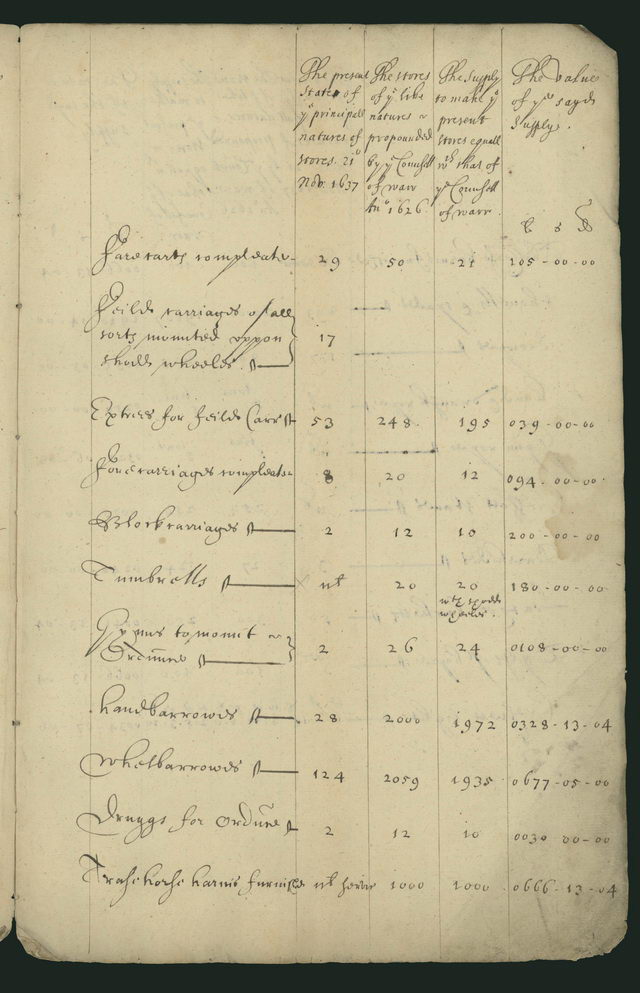 The present
State of
yᵉ principall
natures of
stores. 21°
Nov: 1637
The stores
of yᵉ like
natures
propounded
by yᵉ Counsell
of warr
Anᵒ 1626.
The Supply
to make yᵉ
present
stores equall
wᵗʰ that of
yᵉ Counsell
of warr.
The value
of yᵉ sayd
Supply.
£ s d
compleate 29 50 21 105-00-00
Feilde carriages of all
sorts mounted uppon 17
shodd wheeles
Extrees for feilde Carr 53 248 195 039-00-00
carriages compleate 8 20 12 094-00-00
Blockcarriages 2 12 10 200-00-00
Tumbrells nl 20 20 180-00-00
wᵗʰ shodd
wheeles.
Gynns to mount
Ordnnce 2 26 24 0108-00-00
Handbarrowes 28 2000 1972 0328-13-04
Whelbarrowes 124 2059 1935 0677-05-00
Druggs for Ordnce 2 12 10 0030 00-00
harnis furnish 1000 1000 0666-13-04